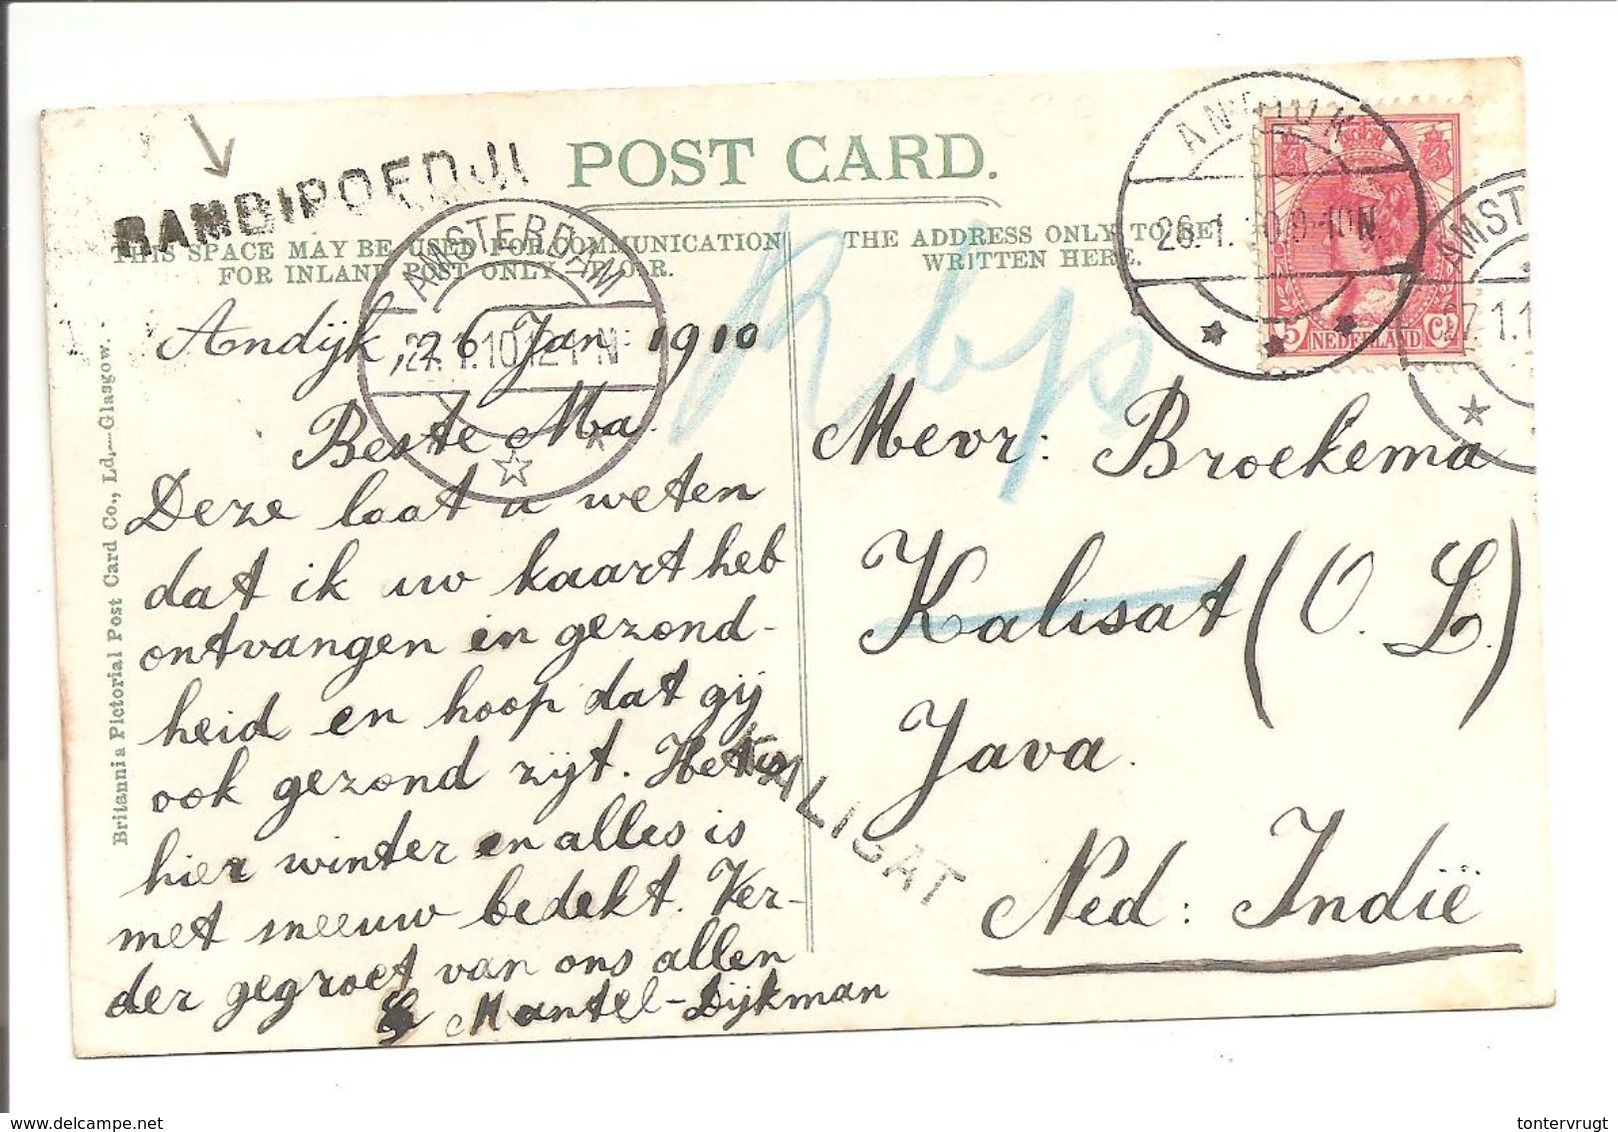 RAMBIPOEDJI
POST CARD.
THIS SPACE MAY BE USED FOR COMMUNICATION
FOR INLAND POST ONLY—P.O.R.
THE ADDRESS ONLY TO BE
WRITTEN HERE.
AMSTERDAM
27.1.10.12-1N
ANDIJK
26.1.10.8-10N
AMST
7.1.1
5 Ct
NEDERLAND
Rbp
Britannia Pictorial Post Card Co., Ld,—Glasgow.
Andijk, 26 Jan 1910
Beste Ma.
Deze laat u weten
dat ik uw kaart heb
ontvangen in gezond-
heid en hoop dat gij
ook gezond zijt. Het is
hier winter en alles is
met sneeuw bedekt. Ver-
der gegroet van ons allen
Mantel-Dijkman
KALISAT
Mevr: Broekema
Kalisat (O. L.)
Java.
Ned: Indië
tontervrugt